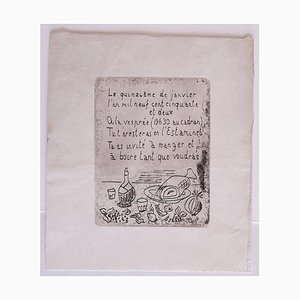 Le quinzième de janvier
l'an mil neuf cent cinquante
et deux
A la vesprée (19h30 au cadran)
Tu t'aresteras en l'Estaminet
Tu es invité à manger et
à boire tant que voudras